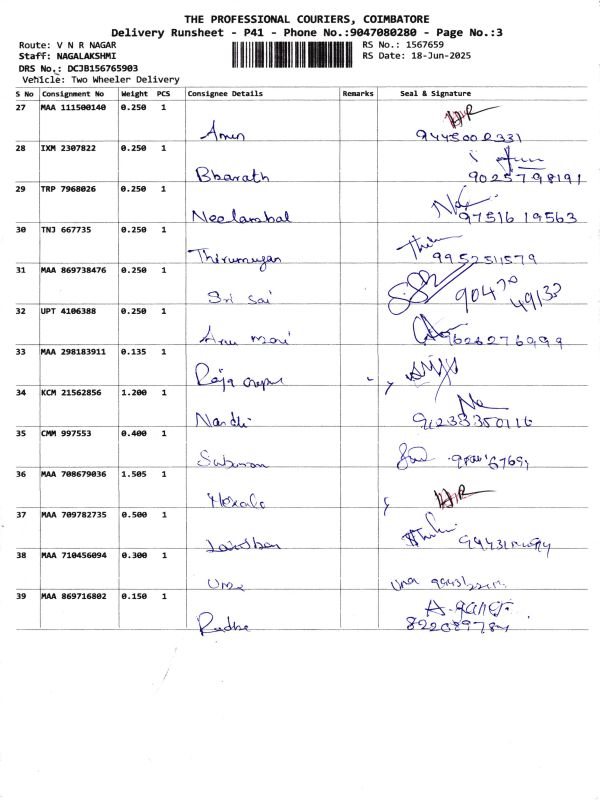 THE PROFESSIONAL COURIERS, COIMBATORE
Delivery Runsheet - P41 - Phone No.:9047080280 - Page No.:3
Route: V N R NAGAR RS No.: 1567659
Staff: NAGALAKSHMI RS Date: 18-Jun-2025
DRS No.: DCJB156765903
Vehicle: Two Wheeler Delivery
S No Consignment No Weight PCS Consignee Details Remarks Seal & Signature
27 MAA 111500140 0.250 1
Amen 9445002331
28 IXM 2307822 0.250 1
Bharath 9025798191
29 TRP 7968026 0.250 1
Neelambal 9751619563
30 TNJ 667735 0.250 1
Thirumugan 9952511579
31 MAA 869738476 0.250 1
Sri Sai 90470 49133
32 UPT 4106388 0.250 1
9626276999
33 MAA 298183911 0.135 1
Raja
34 KCM 21562856 1.200 1
Nandhi
35 CMM 997553 0.400 1
36 MAA 708679036 1.505 1
37 MAA 709782735 0.500 1
38 MAA 710456094 0.300 1
Uma Uma
39 MAA 869716802 0.150 1
Radha